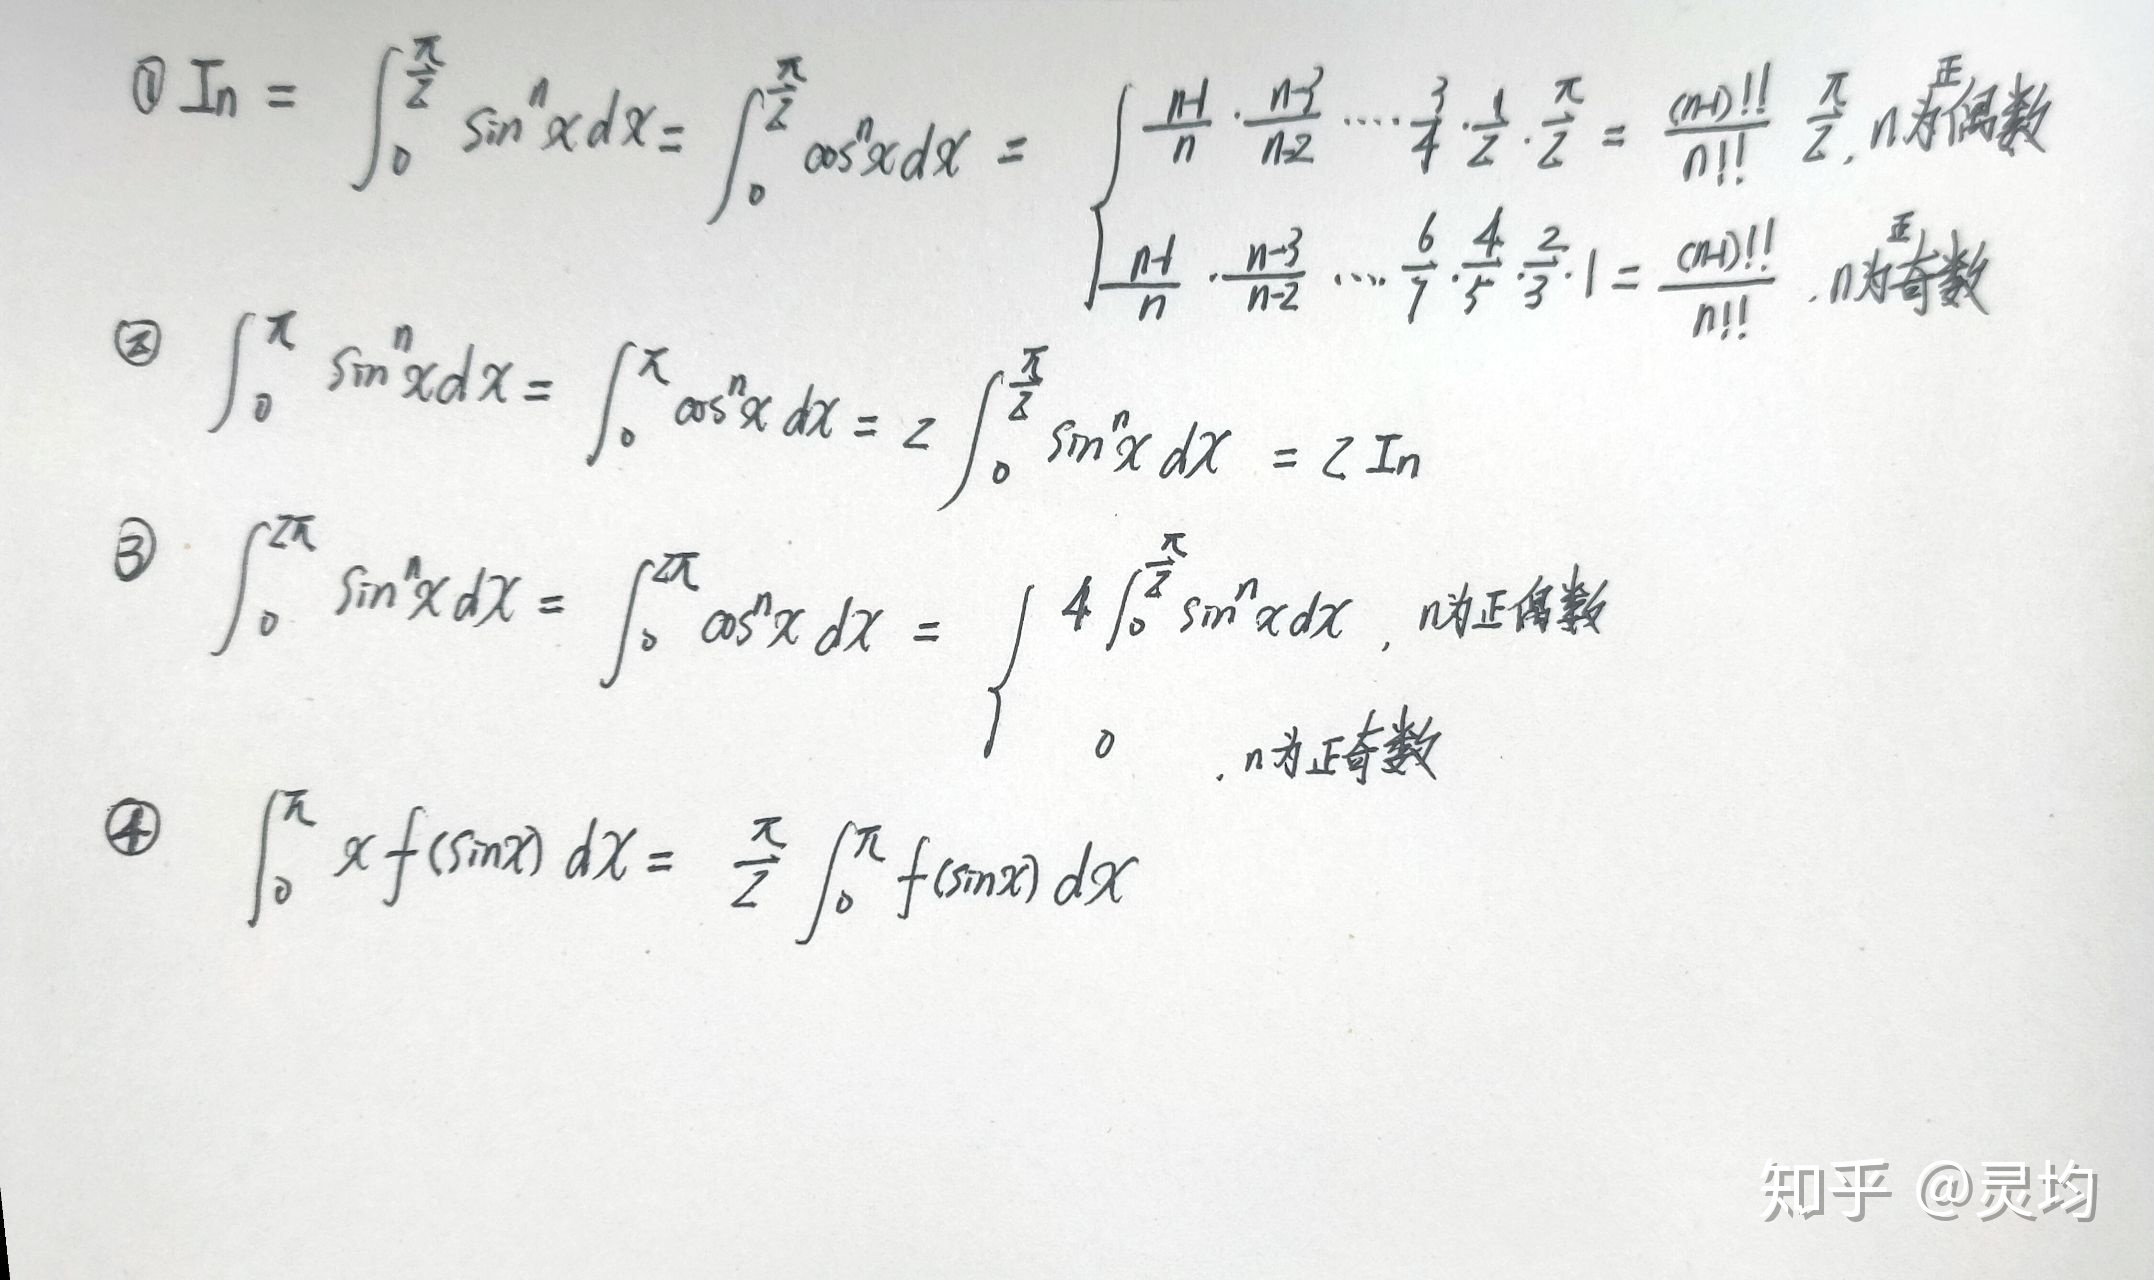 ① In = ∫₀^{π/2} sinⁿx dx = ∫₀^{π/2} cosⁿx dx = { (n-1)/n · (n-3)/(n-2) ····· 3/4 · 1/2 · π/2 = (n-1)!!/n!! π/2, n为正偶数
(n-1)/n · (n-3)/(n-2) ···· 6/7 · 4/5 · 2/3 · 1 = (n-1)!!/n!! , n为正奇数
② ∫₀^π sinⁿx dx = ∫₀^π cosⁿx dx = 2 ∫₀^{π/2} sinⁿx dx = 2 In
③ ∫₀^{2π} sinⁿx dx = ∫₀^{2π} cosⁿx dx = { 4 ∫₀^{π/2} sinⁿx dx , n为正偶数
0 , n为正奇数
④ ∫₀^π x f(sinx) dx = π/2 ∫₀^π f(sinx) dx
知乎 @灵均